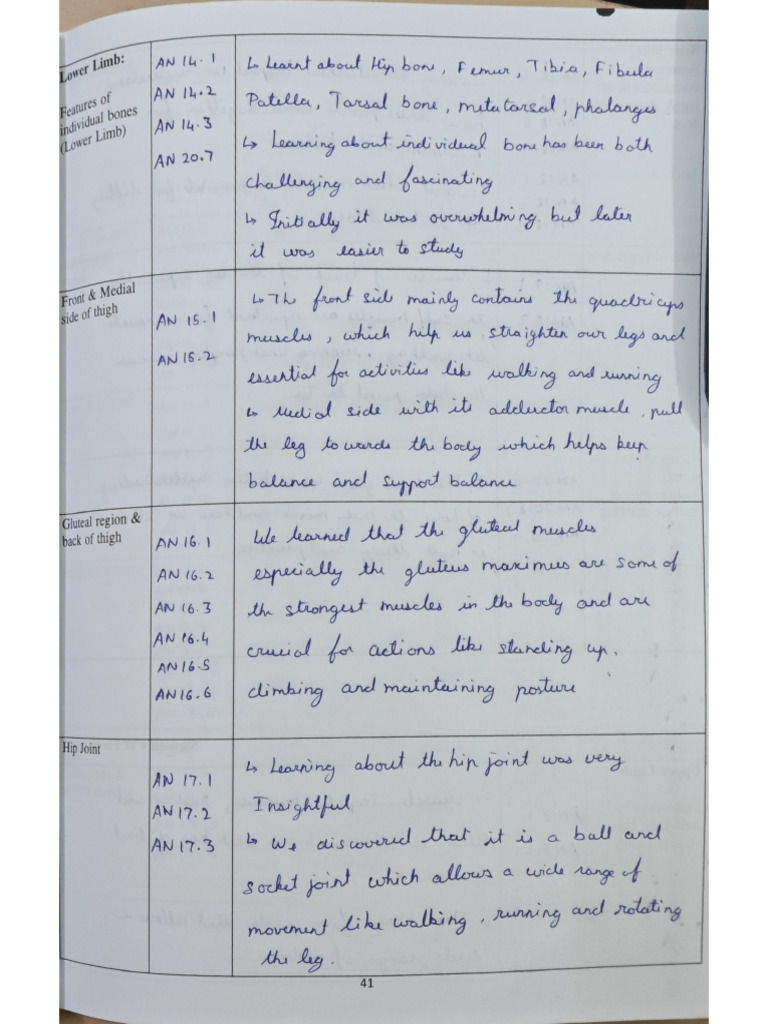 Lower Limb:
Features of
individual bones
(Lower Limb)
AN 14.1
AN 14.2
AN 14.3
AN 20.7
↳ Learnt about Hip bone, Femur, Tibia, Fibula
Patella, Tarsal bone, metatarsal, phalanges
↳ Learning about individual bone has been both
challenging and fascinating
↳ Initially it was overwhelming but later
it was easier to study
Front & Medial
side of thigh
AN 15.1
AN 15.2
↳ The front side mainly contains the quadriceps
muscles, which help us, straighten our legs and
essential for activities like walking and running
↳ Medial side with its adductor muscle, pull
the leg towards the body which helps keep
balance and support balance
Gluteal region &
back of thigh
AN 16.1
AN 16.2
AN 16.3
AN 16.4
AN 16.5
AN 16.6
We learned that the gluteul muscles
especially the gluteus maximus are some of
the strongest muscles in the body and are
crucial for actions like standing up,
climbing and maintaining posture
Hip Joint
AN 17.1
AN 17.2
AN 17.3
↳ Learning about the hip joint was very
Insightful
↳ We discovered that it is a ball and
socket joint which allows a wide range of
movement like walking, running and rotating
the leg.
41